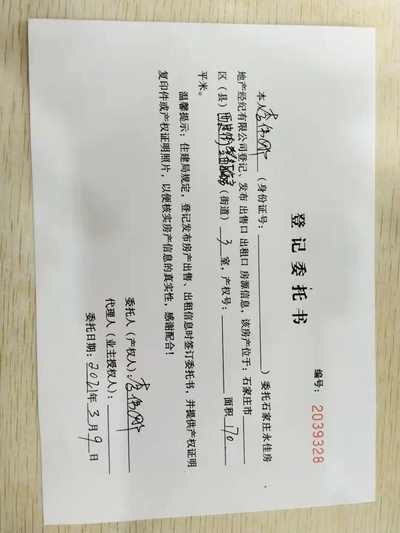 编号：2039328
登记委托书
本人（身份证号：）委托石家庄永佳房
地产经纪有限公司登记、发布 出售口 出租口 房源信息，该房产位于：石家庄市
区（县）（街道）3室，产权号：面积170
平米。
温馨提示：住建局规定，登记发布房产出售、出租信息时签订委托书，并提供产权证明
复印件或产权证明照片，以便核实房产信息的真实性，感谢配合！
委托人（产权人）：
代理人（业主授权人）：
委托日期：2021年3月9日